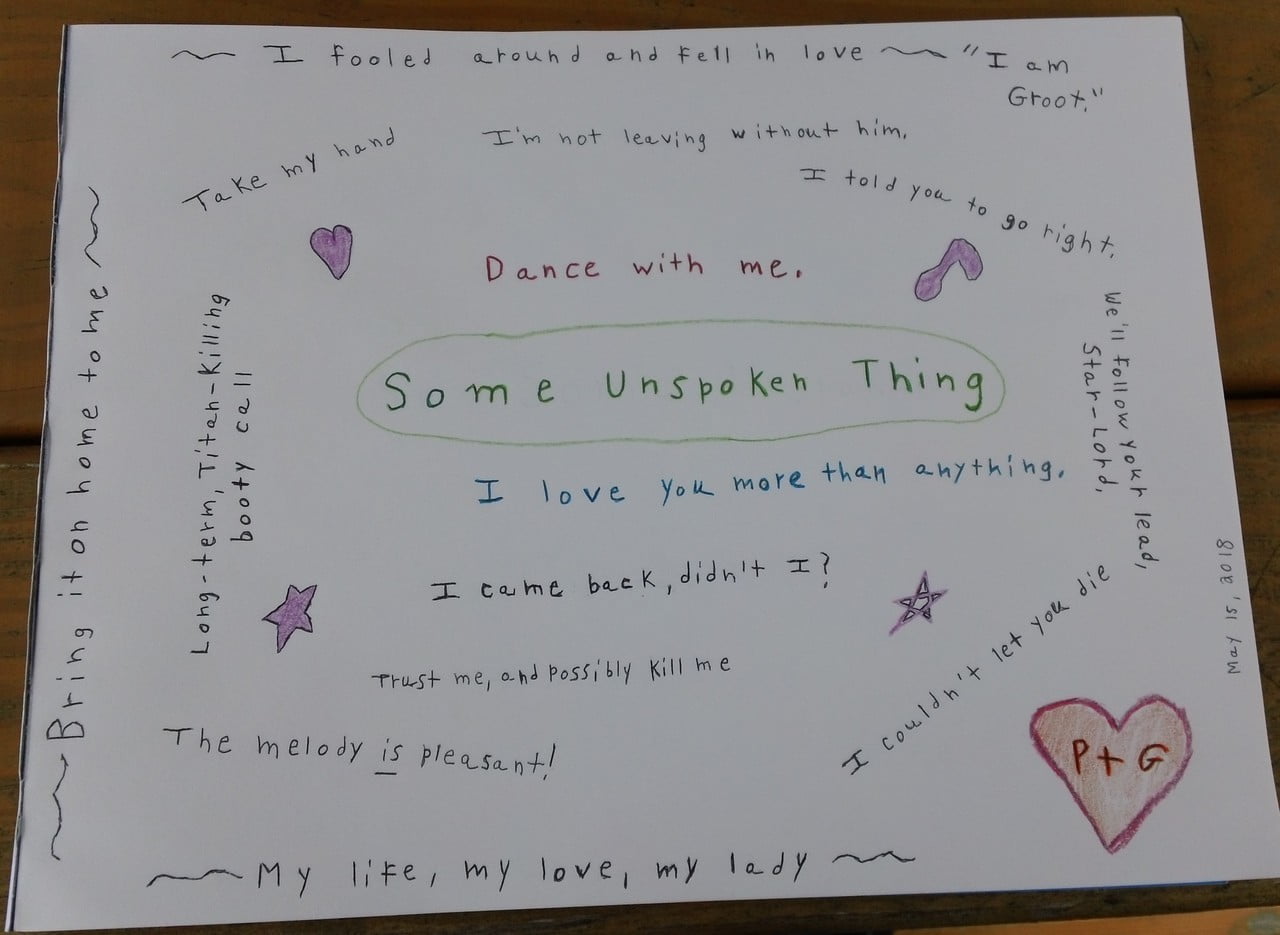 ~ I fooled around and fell in love ~
"I am
Groot."
Take my hand
I'm not leaving without him.
I told you to go right.
Dance with me.
Some Unspoken Thing
We'll follow your lead,
Star-Lord.
~ Bring it on home to me ~
Long-term, Titan-Killing
booty call
I love you more than anything.
I came back, didn't I?
Trust me, and possibly kill me
I couldn't let you die
May 15, 2018
The melody is pleasant!
P + G
~ My life, my love, my lady ~